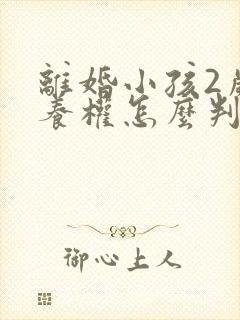 離婚小孩2歲
養權怎麼判
御心上人